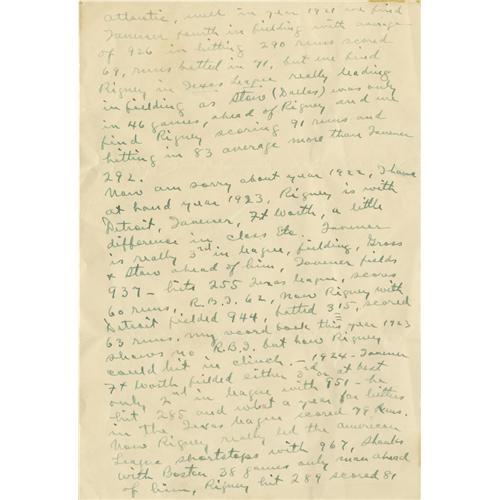 atlantic, well in year 1921 we find
Tavener fourth in fielding with average
of 926 in hitting 290 runs scored
69, runs batted in 71, but we find
Rigney in Texas League really leading
in fielding as Stow (Dallas) was only
in 46 games, ahead of Rigney and we
find Rigney scoring 91 runs and
hitting in 83 average more than Tavener
292.
Now am sorry about year 1922, I have
at hand year 1923, Rigney is with
Detroit, Tavener, Ft Worth, a little
difference in class Etc. Tavener
is really 3rd in league, fielding, Gross
& Stow ahead of him, Tavener fields
937 - hits 255 Texas league, scores
60 runs, R.B.I. 62, Now Rigney with
Detroit fielded 944, batted 315, scored
63 runs, my record book this year 1923
shows no R.B.I. but how Rigney
could hit in clinch. - 1924 - Tavener
Ft Worth fielded either 3rd or at best
only 2nd in league with 951 - he
hit 285 and what a year for hitters
in the Texas league scored 78 Runs.
Now Rigney really led the american
League shortstops with 967, Shanks
with Boston 38 games only man ahead
of him, Rigney hit 289 scored 81